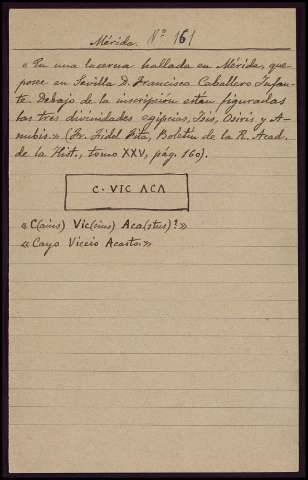 Mérida. Nº 161
«En una lucerna hallada en Mérida, que
posee en Sevilla D. Francisco Caballero Infan-
te. Debajo de la inscripción están figuradas
las tres divinidades egipcias, Isis, Osiris y A-
nubis.» (Fr. Fidel Fita, Boletín de la R. Acad.
de la Hist., tomo XXV, pág. 160).
C · VIC ACA
«C(aius) Vic(cius) Aca(stus)?»
«Cayo Viccio Acasto.»